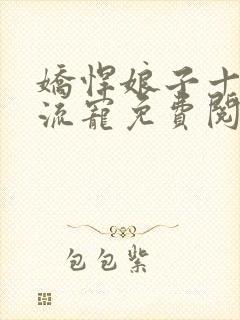 嬌悍娘子十
流寵免費閱
包包紫